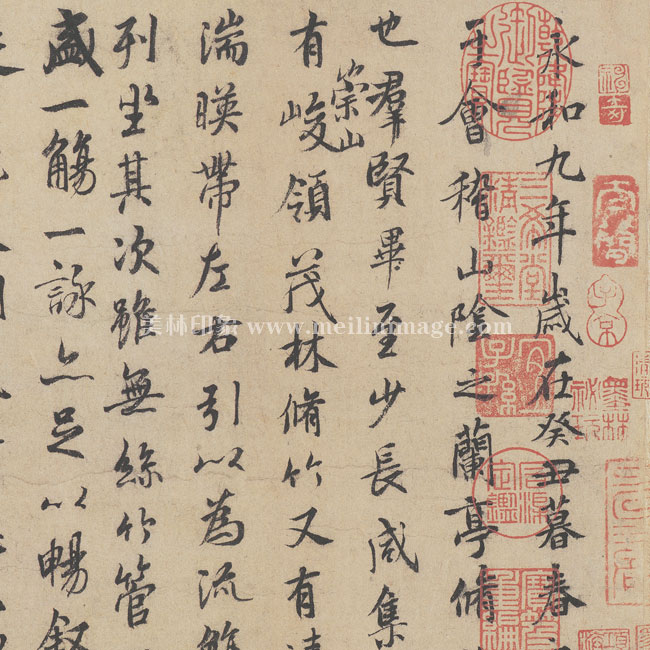 永和九年歲在癸丑暮春
于會稽山陰之蘭亭脩
也羣賢畢至少長咸集
有崇山峻領茂林脩竹又有清
湍暎帶左右引以為流觴
列坐其次雖無絲竹管
盛一觴一詠亦足以暢敘
三希堂精鑑璽
宜子孫
子京
墨林祕玩
美林印象 www.meilinimage.com